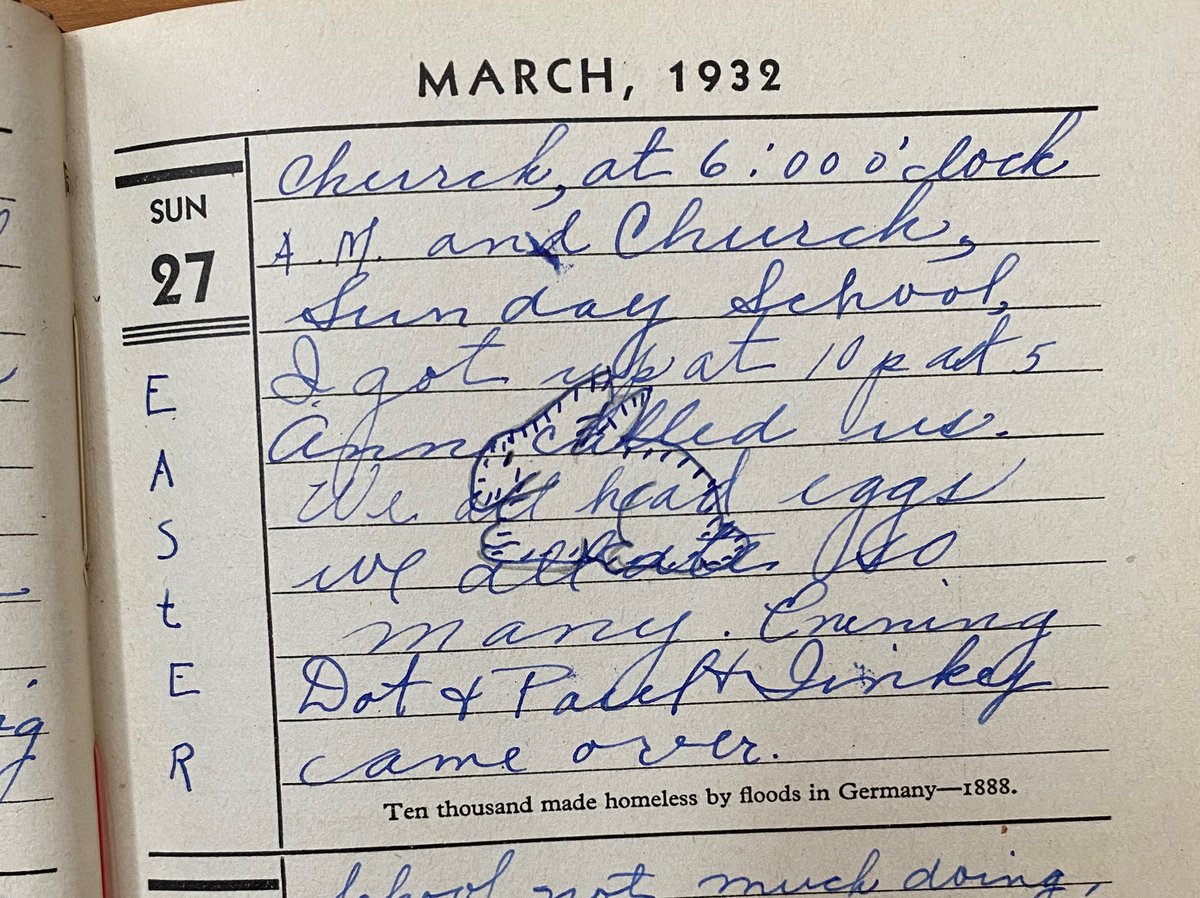 MARCH, 1932
SUN
27
E
A
S
t
E
R
Church, at 6:00 o'clock
A.M. and Church,
Sunday School,
I got up at 10 past 5
Ann called us.
We all head eggs
we all ate so
many. Evening
Dot & Paul + Dinkey
came over.
Ten thousand made homeless by floods in Germany—1888.
School not much doing,